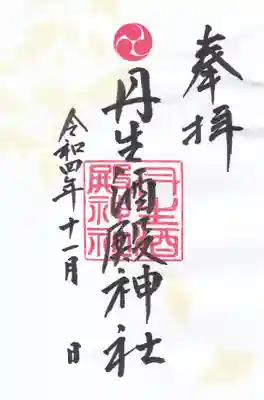 奉拝
丹生酒殿神社
丹生酒殿神社
令和四年十一月 日